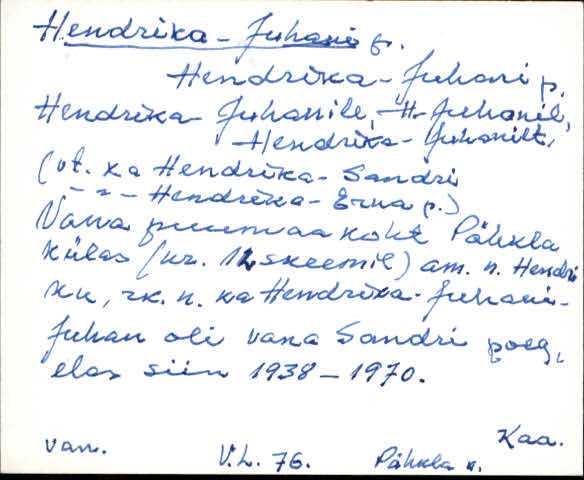 Hendrika-Juhani p.
Hendrika-Juhani p.
Hendrika-Juhanile, H-Juhanil,
Hendrika-Juhanilt,
(vt. ka Hendrika-Sandri
– " – Hendrika-Erna p.)
Vana puumaa koht Pähkla
külas (nr. 12 skeemil) am. n. Hendri
ku, rk. n. ka Hendrika-Juhani-
Juhan oli vana Sandri poeg,
elas siin 1938 – 1970.
Kaa.
van. V.L. 76. Pähkla k.